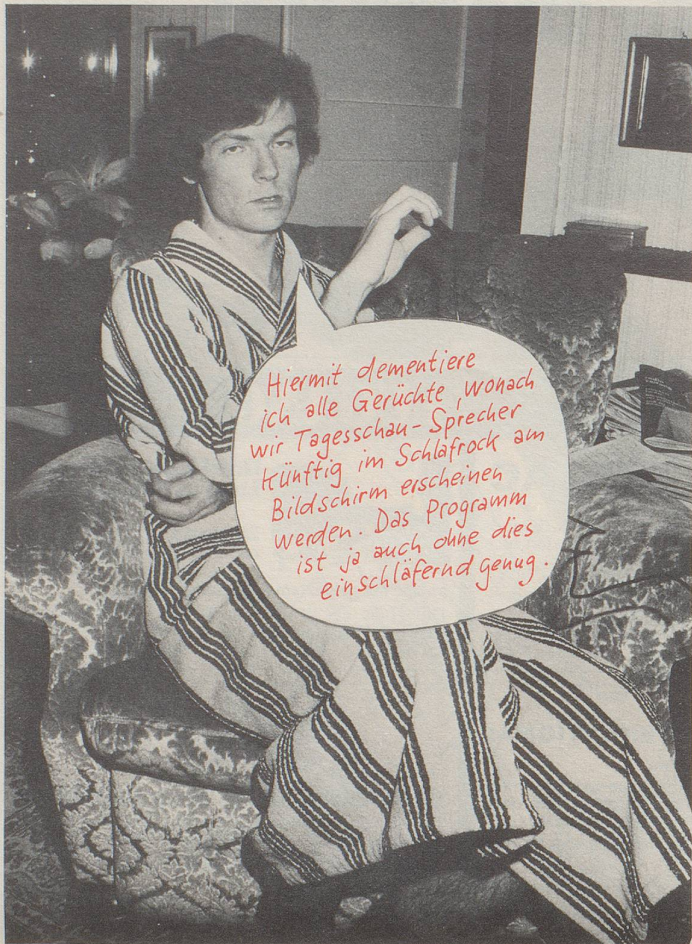 Hiermit dementiere
ich alle Gerüchte, wonach
wir Tagesschau-Sprecher
künftig im Schlafrock am
Bildschirm erscheinen
werden. Das Programm
ist ja auch ohne dies
einschläfernd genug.